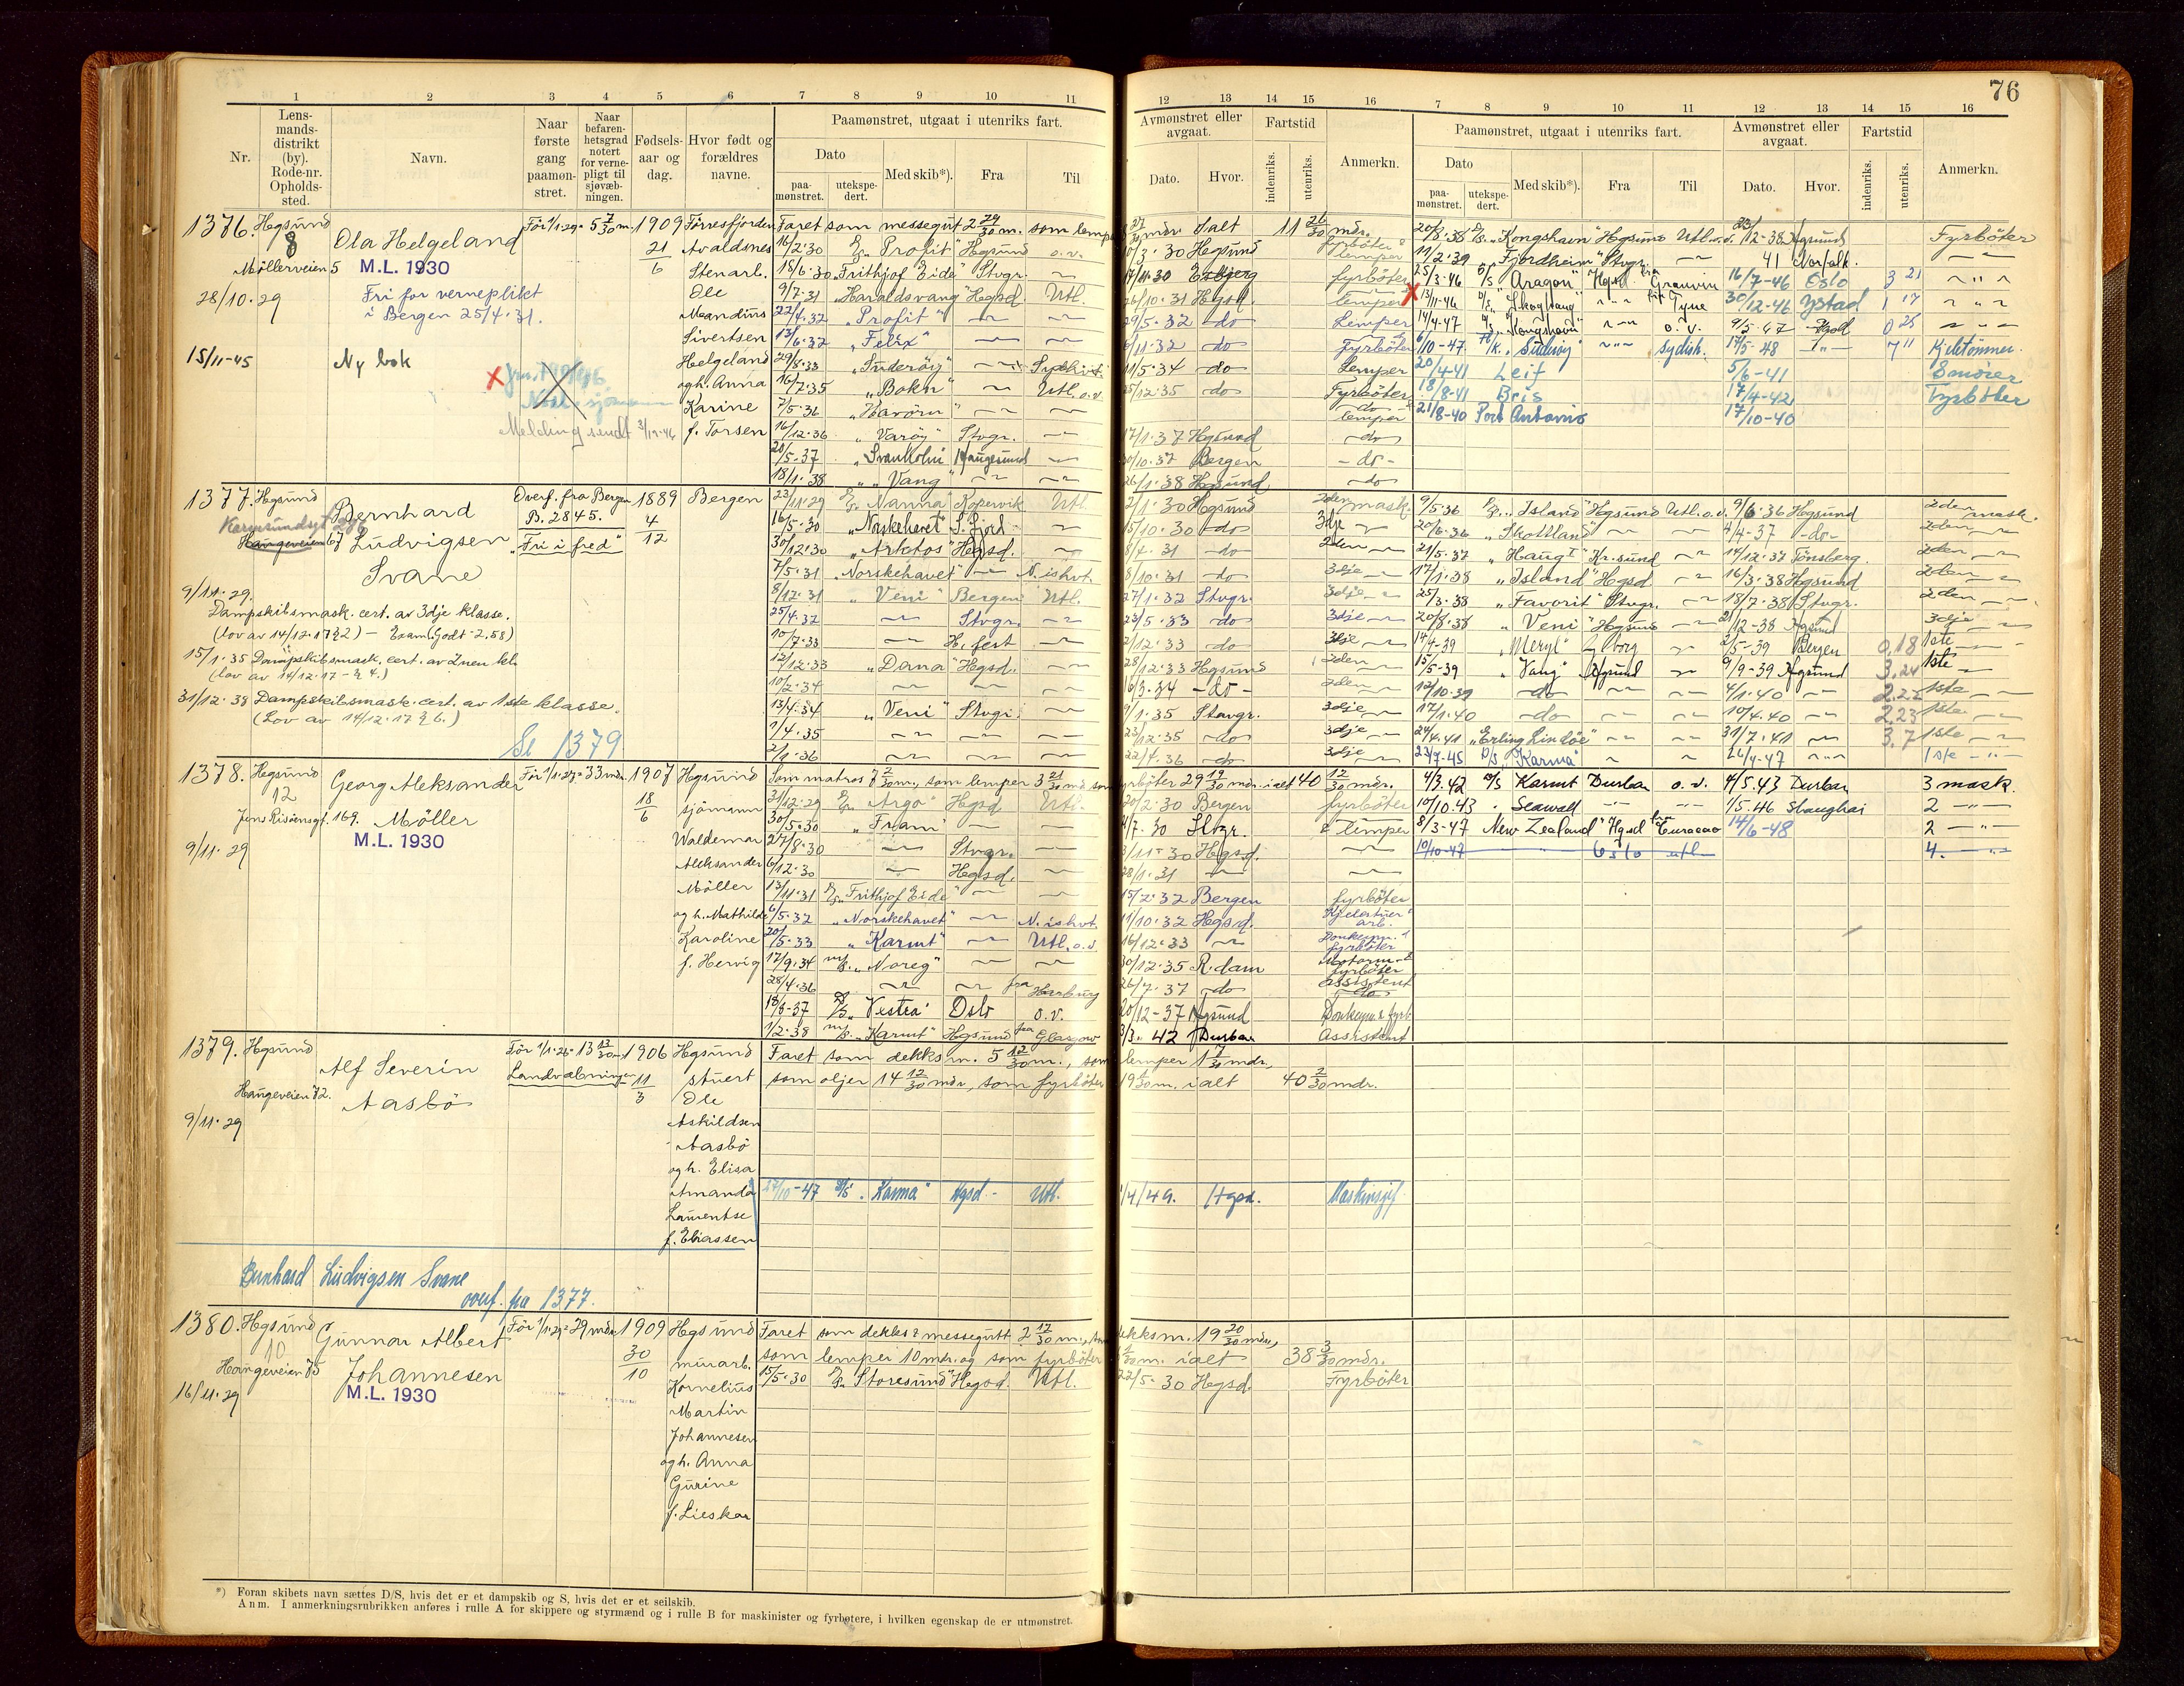 76
1 2 3 4 5 6 7 8 9 10 11
Nr.
Lens-
mands-
distrikt
(by).
Rode-nr.
Opholds-
sted.
Navn.
Naar
første
gang
paamøn-
stret.
Naar
befaren-
hetsgrad
notert
for verne-
pligt til
sjøvæb-
ningen.
Fødsels-
aar og
dag.
Hvor født og
forældres
navne.
Paamønstret, utgaat i utenriks fart.
Dato
paa-
mønstret.
utekspe-
dert.
Med skib*).
Fra
Til
12 13 14 15 16 7 8 9 10 11 12 13 14 15 16
Avmønstret eller
avgaat.
Dato.
Hvor.
Fartstid
indenriks.
utenriks.
Anmerkn.
Paamønstret, utgaat i utenriks fart.
Dato
paa-
mønstret.
utekspe-
dert.
Med skib*).
Fra
Til
Avmønstret eller
avgaat.
Dato.
Hvor.
Fartstid
indenriks.
utenriks.
Anmerkn.
1376. Hgsund
8
Ola Helgeland
Møllerveien 5
M.L. 1930
28/10.29
Fri for verneplikt
i Bergen 25/4.31.
15/11-45 Ny bok
Melding sendt
Før 1/1-29 = 5 7/30 m.
1909
21
6
Førresfjorden
Avaldsnes
Stenarb.
Ole
Mandius
Sivertsen
Helgeland
og h. Anna
Karine
f. Torsen
Faret som messegut 2 29/30 m. som lemper
mdr ialt 11 26/30 mdr.
16/2.30 "Profit" Hgsund o.v. Hgsund
18/6.30 "Frithjof Eide" Stvgr. 17/11.30 Esbjerg fyrbøter
9/7.31 "Haraldsvang" Hgsd. Utl. 26/10.31 Hgsd. lemper
22/4.32 "Profit" 29/5.32 do Lemper
13/6.32 "Felix" do Fyrbøter
29/8.33 "Suderøy" 11/5.34 do Lemper
16/7.35 "Bokn" Utl. o.v. 25/12.35 do Fyrbøter
7/5.36 "Havørn" do lemper
16/12.36 "Varøy" Stvgr. 17/1.37 Hgsund do
20/5-37 "Svanholm" Haugesund 30/10.37 Bergen - do -
18/1.38 "Vang" 26/1.38 Hgsund do
20/8.38 "Kongshavn" Hgsund Utl. o.v. 23/12-38 Hgsund Fyrbøter
11/2.39 "Fjordheim" Stvgr. 41 Norfolk.
25/3-46 D/S "Aragon" Hgsd fra Granvin 16/7-46 Oslo 3 21
13/11-46 D/S "Skogstang" fra Tyne 30/12-46 Ystad 1 17
14/4-47 D/S "Kongshavn" o.v. 9/5-47 Hgsd 0 25
6/10-47 "Suderøy" Sydish. 17/5-48 7 11 Kjeletømmer.
20/4-41 Leif 5/6-41 Smører
18/8-41 Bris 17/4-42 Fyrbøter
21/8-40 Port Antonio 17/10-40
1377. Hgsund
Karmsundsgt 216
Haugeveien 67
Bernhard
Ludvigsen
Svane
Overf. fra Bergen
B. 2845.
"Fri i fred"
1889
4
12
Bergen
9/11.29.
Dampskibsmask. cert. av 3dje klasse.
(lov av 14/12.17 § 2) - Exam. (Godt - 2,58)
15/1.35 Dampskibsmask. cert. av 2nen kl.
(lov av 14/12.17 - § 4.)
31/12.38 Dampskibsmask. cert. av 1ste klasse.
(Lov av 14/12.17 § 6.)
Se 1379
23/11.29 "Nanna" Kopervik Utl. 2/1.30 Hgsund 2den mask.
16/5.30 "Norskehavet" S. Fjord 15/10.30 do 3dje
30/12.30 "Arktos" Hgsd. 8/4.31 do 2den
7/5.31 "Norskehavet" N. ishvt. 8/10.31 do 3dje
8/12.31 "Veni" Bergen Utl. 27/1.32 Stvgr. 3dje
25/4.32 Stvgr. 23/5.33 do 3dje
10/7.33 H. fest 2/12.33 do 3dje
12/12.33 "Dana" Hgsd. 28/12.33 Hgsund 2den
10/2.34 6/3.34 - do - 2den
13/4.34 "Veni" Stvgr. 9/1.35 Stavgr. 3dje
1/4.35 23/12.35 do 3dje
2/1.36 22/4.36 do 3dje
9/5.36 "Island" Hgsund Utl. o.v. 9/6.36 Hgsund 2den mask.
20/6.36 "Skottland" 4/4-37 - do - 2den
21/5.37 "Haug I" Kr.sund 14/12.37 Tønsberg. 2den
17/1.38 "Island" Hgsd 16/3.38 Hgsund 2den
25/3.38 "Favorit" Stvgr. 18/7.38 Stvgr. 2den
20/8.38 "Veni" Hgsund 21/12-38 Hgsund 3dje
14/4-39 "Meryl" Ålborg 2/5-39 Bergen 0,18 1ste
15/5-39 "Vang" Hgsund 9/9-39 Hgsund 3,24 1ste
12/10.39 do 4/1.40 2,22 1ste
17/1.40 do 10/4.40 2,23 1ste
24/4.41 "Erling Lindøe" 31/7.41 3,7 1ste
23/7-45 D/S "Karma" 26/4-47 1ste
1378. Hgsund
12
Jens Risøensgt. 169.
Georg Aleksander
Møller
M.L. 1930
9/11.29
Før 1/1-29 = 33 mdr.
1907
18
6
Hgsund
sjømann
Waldemar
Aleksander
Møller
og h. Mathilde
Karoline
f. Hervig
Som matros 7 2/30 m., som lemper 3 21/30 md. som
fyrbøter 29 19/30 mdr. ialt 40 12/30 mdr.
31/12.29 "Argo" Hgsd Utl. 20/2.30 Bergen fyrbøter
30/5.30 "Fram" /7.30 Stvgr. & lemper
27/8.30 Stvgr. /11.30 Hgsd.
6/12.30 Hgsd. 28/1.31
13/11.31 "Frithjof Eide" 15/2.32 Bergen fyrbøter
6/5.32 "Norskehavet" N. ishvt. 11/10.32 Hgsd. arb.
20/5.33 "Karmt" Utl. o.v. 16/12.33 Donkeym. & fyrbøter
17/9.34 "Noreg" 30/12.35 R.dam Motorm. & fyrbøter
28/4.36 fra Harburg 26/7.37 do assistent
18/8-37 "Vestra" Oslo o.v. 20/12-37 Hgsund Donkeym. & fyrb
1/2.38 "Karmt" Hgsund fra Glasgow 3/3.42 Durban Assistent
4/3.42 M/S Karmt Durban o.v. 4/5.43 Durban 3 mask.
10/10.43 Seawall 1/5.46 Shanghai 2
8/3-47 New Zealand" Hgsd fra Curacao 14/6-48 2
10/10-47 Oslo utl 4.
1379. Hgsund
Haugeveien 72.
Alf Severin
Aasbø
9/11.29
Før 1/1-26 = 13 13/30 m
Landvæbningen
1906
11
3
Hgsund
stuert
Ole
Askildsen
Aasbø
og h. Elisa
Amanda
Laurentse
f. Eliassen
Faret som dekksm. 5 12/30 m., som lemper 1 7/30 mdr,
som oljer 14 12/30 mdr, som fyrbøter 19 m. ialt 40 2/30 mdr.
27/10-47 D/S "Karma" Hgsd - Utl. /4/49. Hgsd. Maskinsjef.
Bernhard Ludvigsen Svane
overf. fra 1377.
1380. Hgsund
10
Haugeveien 75
Gunnar Albert
Johannesen
M.L. 1930
16/11.29
Før 1/1-29 = 29 mdr.
1909
30
10
Hgsund
murarb.
Kornelius
Martin
Johannesen
og h. Anna
Gurine
f. Lieskar
Faret som dekks & messegutt 2 12/30 m., som dekksm. 19 20/30 mdr,
som lemper 10 mdr. og som fyrbøter m. ialt 38 3/30 mdr.
15/5.30 "Storesund" Hgsd. Utl. 22/5.30 Hgsd. Fyrbøter
*) Foran skibets navn sættes D/S, hvis det er et dampskib og S, hvis det er et seilskib.
Anm. I anmerkningsrubrikken anføres i rulle A for skippere og styrmænd og i rulle B for maskinister og fyrbøtere, i hvilken egenskap de er utmønstret.